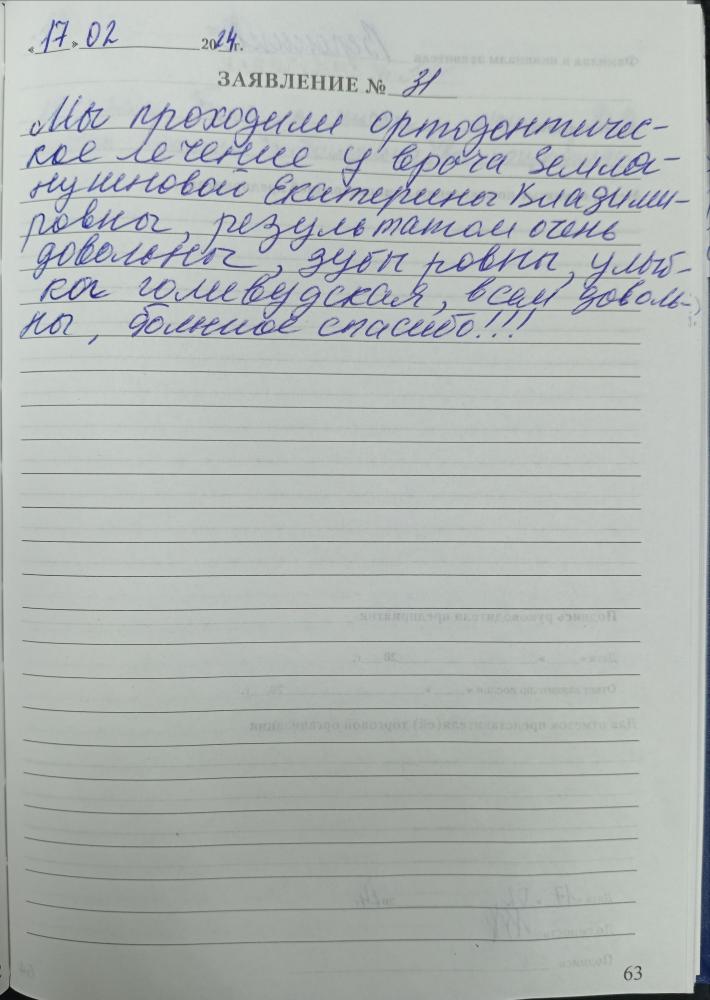 «17» 02 2024г.
ЗАЯВЛЕНИЕ № 31
Мы проходили ортодонтичес-
кое лечение у врача Земля-
нушновой Екатерины Владими-
ровны, результатом очень
довольны, зубы ровны, улыб-
ка голивудская, всем доволь-
ны, большое спасибо!!!
63